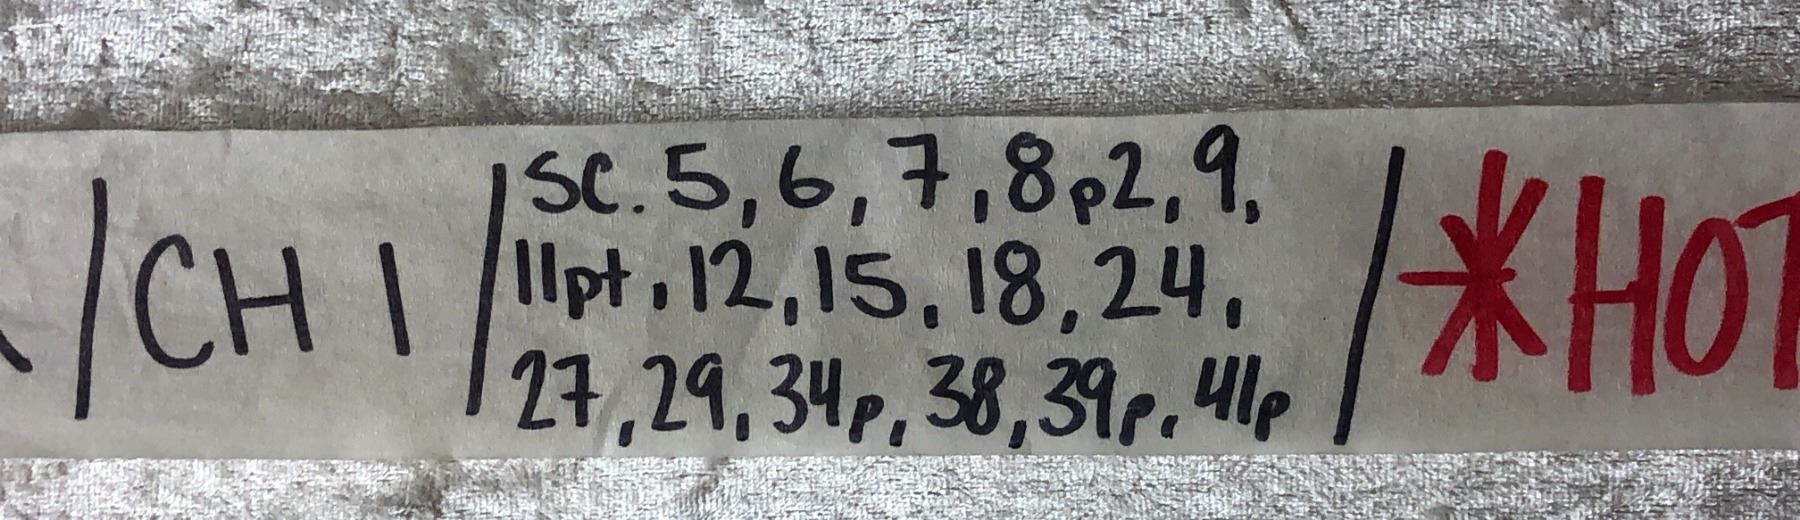 / CH 1 / SC. 5, 6, 7, 8p2, 9,
11pt, 12, 15, 18, 24,
27, 29, 34p, 38, 39p, 41p / *HOT